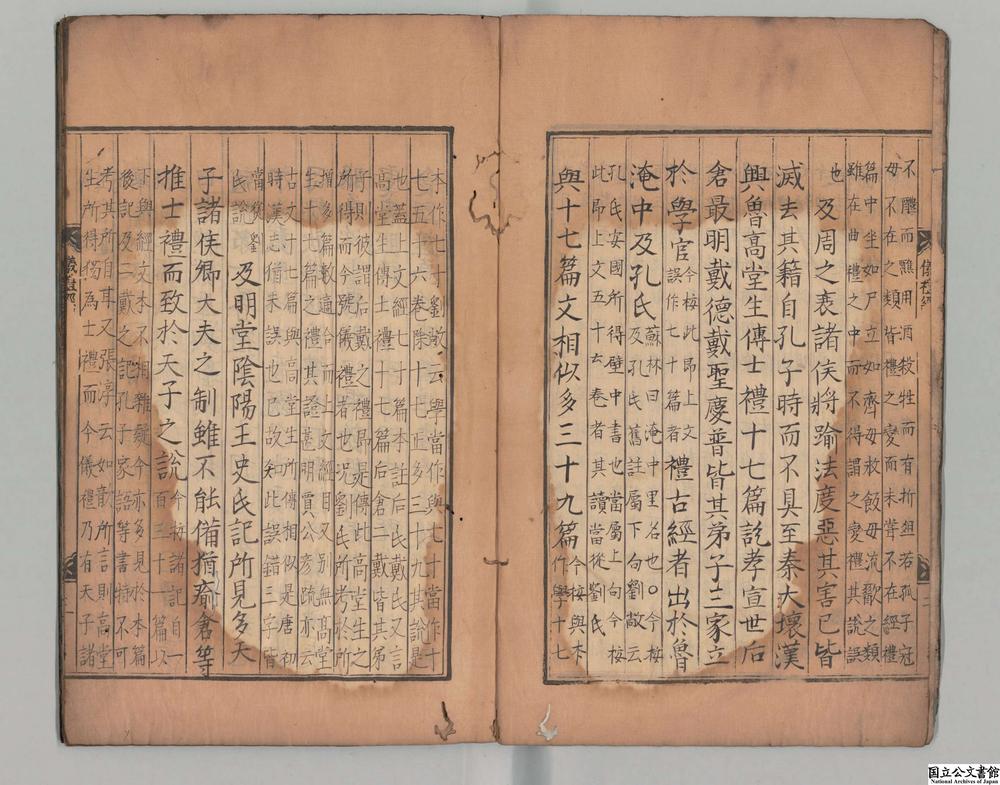 不醮而醮用酒殺牲而有折俎若孤子冠
毋不在之類皆禮之變而未甞不在經禮
篇中坐如尸立如齊毋放飯毋流歠之類
雖在曲禮之中而不得謂之變禮其說誤
也
及周之衰諸侯將踰法度惡其害已皆
滅去其籍自孔子時而不具至秦大壞漢
興魯高堂生傳士禮十七篇訖孝宣世后
倉最明戴德戴聖慶普皆其弟子三家立
於學官今按此昻上文
誤作七十篇者禮古經者出於魯
淹中及孔氏蘇林曰淹中里名也○今桉
及孔氏舊註屬下句劉敞云
孔氏安國所得壁中書也當屬上句今桉
此昻上文五十六卷者其讀當從劉氏
與十七篇文相似多三十九篇今桉與本
作學十七
本作七十劉敞云學當作與七十當作十
七五十六卷除十七正多三十九其說是
也蓋上文經七十篇本註后氏戴氏又言
高堂生傳士禮十七篇后倉二戴皆其弟
子則彼謂后戴之禮昻是傳此高堂生之
所得而今號儀禮者也况劉氏所考於所
增多篇數適合而上文經目又別無高堂
生十七篇之禮其證甚明賈公彥疏亦云
古文十七篇與高堂生所傳相似是唐初
時漢志猶未誤也已故知此誤錯三字皆
當從劉
氏說及明堂陰陽王史氏記所見多天
子諸侯卿大夫之制雖不能備猶瘉倉等
推士禮而致於天子之說今桉諸記自一
百三十一篇以
下與經文本不相雜疑今亦多見於本篇
後記及二戴之記孔子家語等書特不可
考其所自耳又張淳云如歆所言則高堂
生所得獨為士禮而今儀禮乃有天子諸
儀禮經
儀禮經
国立公文書館
National Archives of Japan